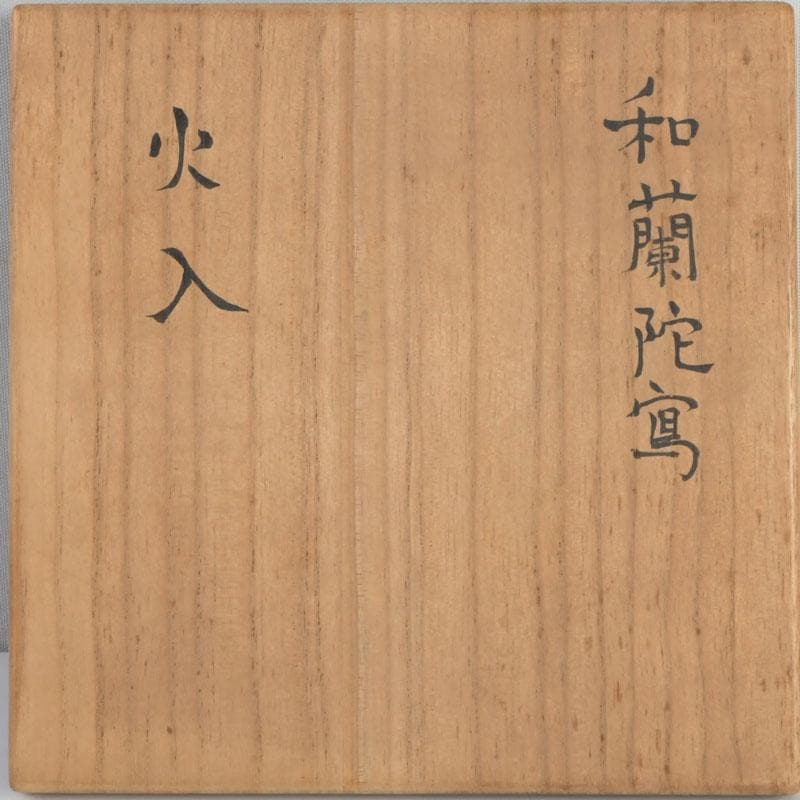 和蘭陀寫
火入